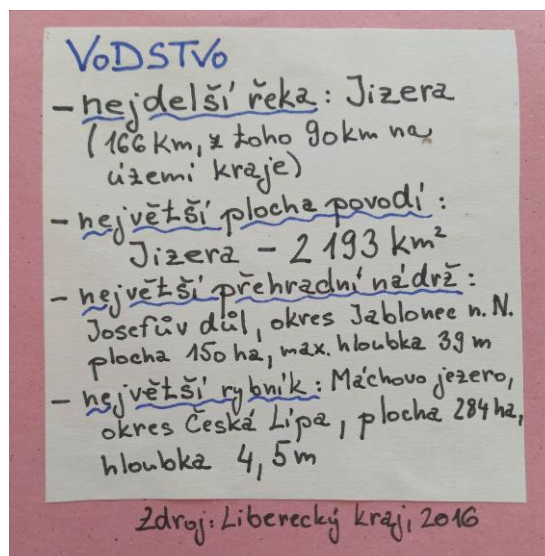 VODSTVO
- nejdelší řeka: Jizera
(166 km, z toho 90 km na
území kraje)
- největší plocha povodí:
Jizera - 2 193 km²
- největší přehradní nádrž:
Josefův důl, okres Jablonec n. N.
plocha 150 ha, max. hloubka 39 m
- největší rybník: Máchovo jezero,
okres Česká Lípa, plocha 284 ha,
hloubka 4,5 m
Zdroj: Liberecký kraj, 2016